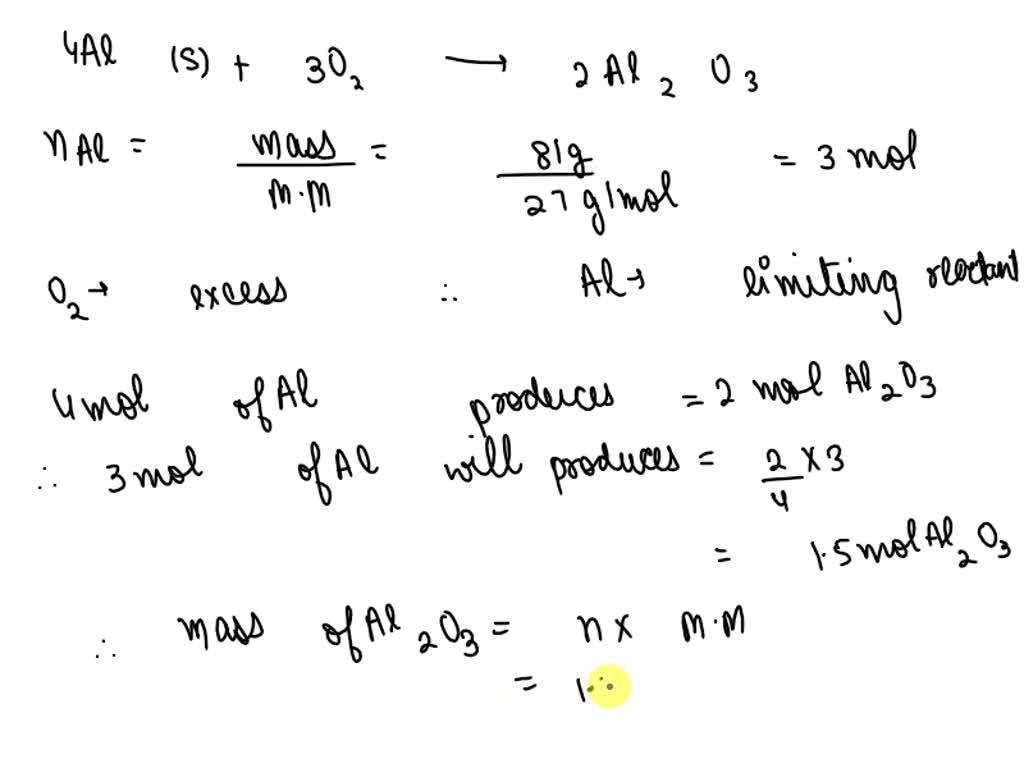 4Al (s) + 3O₂ ⟶ 2Al₂O₃
nAl = mass/m.m = 81g/27 g/mol = 3 mol
O₂→ excess ∴ Al→ limiting reactant
4mol of Al produces = 2 mol Al₂O₃
∴ 3mol of Al will produces = 2/4 x 3
= 1.5mol Al₂O₃
∴ mass of Al₂O₃ = n x m.m
= 1.